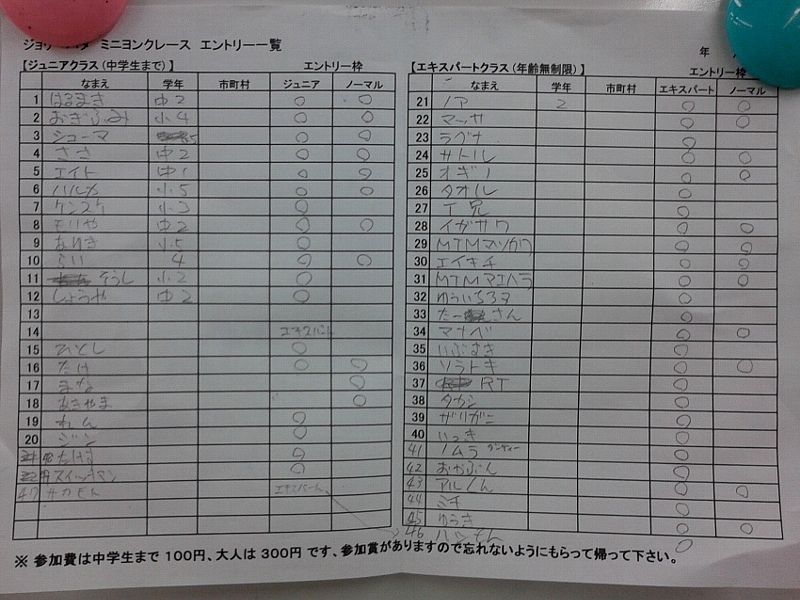 ミニヨンクレース エントリー一覧
年
【ジュニアクラス(中学生まで)】 エントリー枠
なまえ 学年 市町村 ジュニア ノーマル
1 はるまき 中2 ○ ○
2 おぎふみ 小4 ○ ○
3 シューマ 5 ○ ○
4 ささ 中2 ○ ○
5 エイト 中1 ○ ○
6 ハルカ 小5 ○ ○
7 ケンスケ 小3 ○
8 もりや 中2 ○ ○
9 小5 ○
10 らい 4 ○ ○
11 そうし 小2 ○
12 しょうや 中2 ○
13
14 エキスパート
15 ひとし ○
16 たけ ○ ○
17 まな ○
18 あきやま ○
19 れん ○
20 ジン ○
たける ○
スイッチマン ○
47 サカモト エキスパート
【エキスパートクラス(年齢無制限)】 エントリー枠
なまえ 学年 市町村 エキスパート ノーマル
21 ノア 2 ○ ○
22 マッサ ○ ○
23 ラグナ ○
24 サトル ○ ○
25 オギノ ○ ○
26 タオル ○
27 T兄 ○
28 イガサワ ○ ○
29 MTMマツカワ ○ ○
30 エイキチ ○ ○
31 MTMマエハラ ○ ○
32 ゆういちろう ○
33 たー さん ○
34 マナベ ○ ○
35 いぶすき ○
36 ソラトキ ○ ○
37 RT ○
38 タカシ ○
39 ザリガニ ○
40 いっき ○
41 ノムラ ○
42 おやぶん ○
43 アルくん ○ ○
44 ミキ ○
45 ゆうき ○ ○
46 ○
※ 参加費は中学生まで 100円、大人は 300円 です、参加賞がありますので忘れないようにもらって帰って下さい。